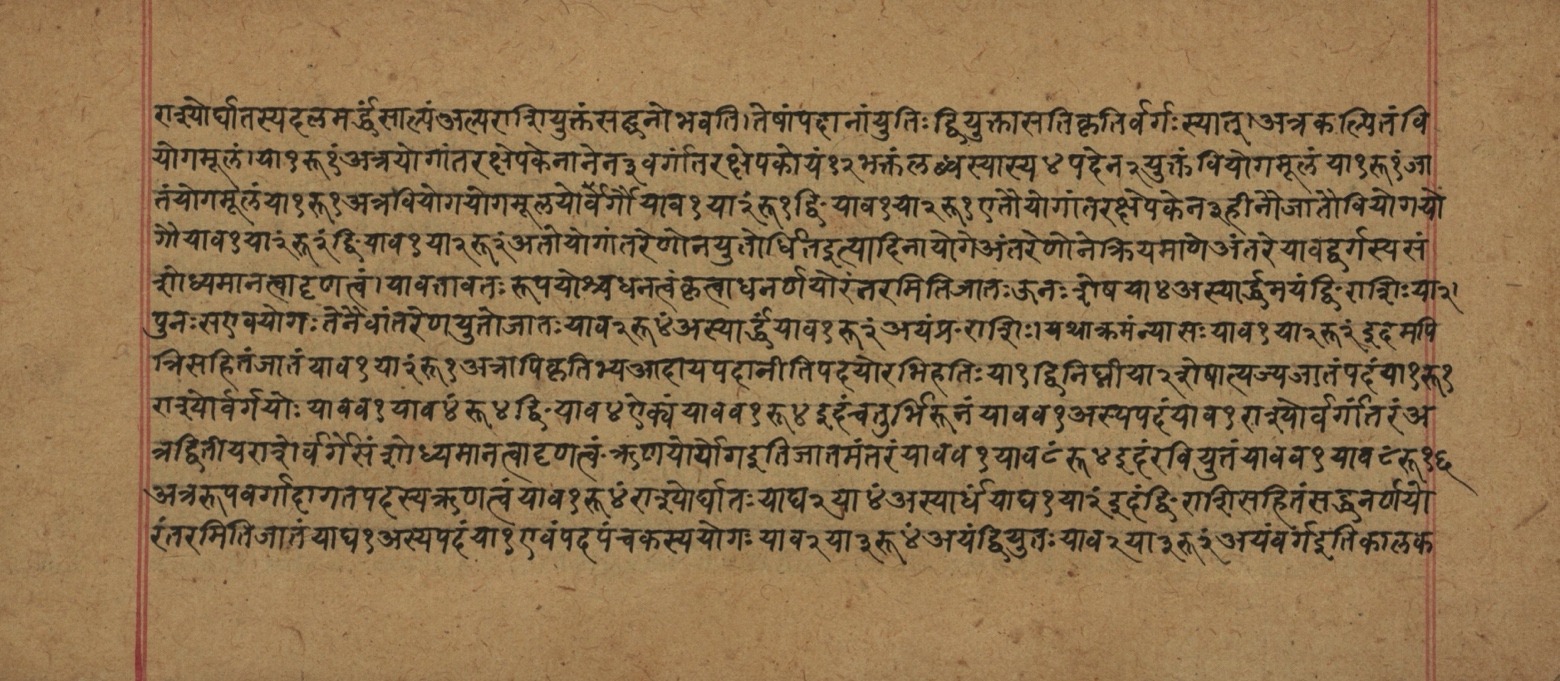 राश्योर्घातस्यदलमर्द्धंसाल्पंअल्पराशियुक्तंसद्घनोभवति।तेषांपदानांयुतिःद्वियुक्तासतिकृतिर्वर्गःस्यात्।अत्रकल्पितंवि
योगमूलं।या१रू१ंअत्रयोगांतरक्षेपकेनानेन३वर्गांतरक्षेपकोयं१२भक्तंलब्धस्यास्य४पदेन२युक्तंवियोगमूलंया१रू१ंजा
तंयोगमूलंया१रू१अत्रवियोगयोगमूलयोर्वर्गौयाव१या२ंरू१द्वि॰याव१या२रू१एतौयोगांतरक्षेपकेन३हीनौजातौवियोगयो
गौयाव१या२ंरू२ंद्वियाव१या२रू२ंअतोयोगांतरेणोनयुतोर्धितइत्यादिनायोगेअंतरेणोनेक्रियमाणेअंतरेयावद्वर्गस्यसं
शोध्यमानत्वादृणत्वं।यावत्तावतःरूपयोश्चधनत्वंकृत्वाधनर्णयोरंतरमितिजातःऊनःशेषया४अस्यार्द्धमयंद्विराशिःया२।
पुनःसएवयोगःतेनैवांतरेणयुतोजातःयाव२रू४ंअस्यार्द्धंयाव१रू२ंअयंप्र॰राशिः।यथाक्रमंन्यासःयाव१या२रू२ंइदमपि
त्रिसहितंजातंयाव१या२ंरू१अत्रापिकृतिभ्यआदायपदानीतिपदयोरभिहतिःया१द्विनिघ्नीया२शेषात्त्यज्यजातंपदंया१रू१
राश्योर्वर्गयोःयावव१याव४ंरू४द्वि॰याव४ऐक्यंयावव१रू४इदंचतुर्भिरूनंयावव१अस्यपदंयाव१राश्योर्वर्गांतरंअ
त्रद्वितीयराशेर्वर्गेसंशोध्यमानत्वादृणत्वं॰ऋणयोर्योगइतिजातमंतरंयावव१याव८ंरू४इदंरवियुतंयावव१याव८ंरू१६
अत्ररूपवर्गादागतपदस्यऋणत्वंयाव१रू४ंराश्योर्घातःयाघ२या४ंअस्यार्धंयाघ१या२ंइदंद्वि॰राशिसहितंसद्धनर्णयो
रंतरमितिजातंयाघ१अस्यपदंया१एवंपदपंचकस्ययोगःयाव२या३रू४ंअयंद्वियुतःयाव२या३रू२ंअयंवर्गइतिकालक